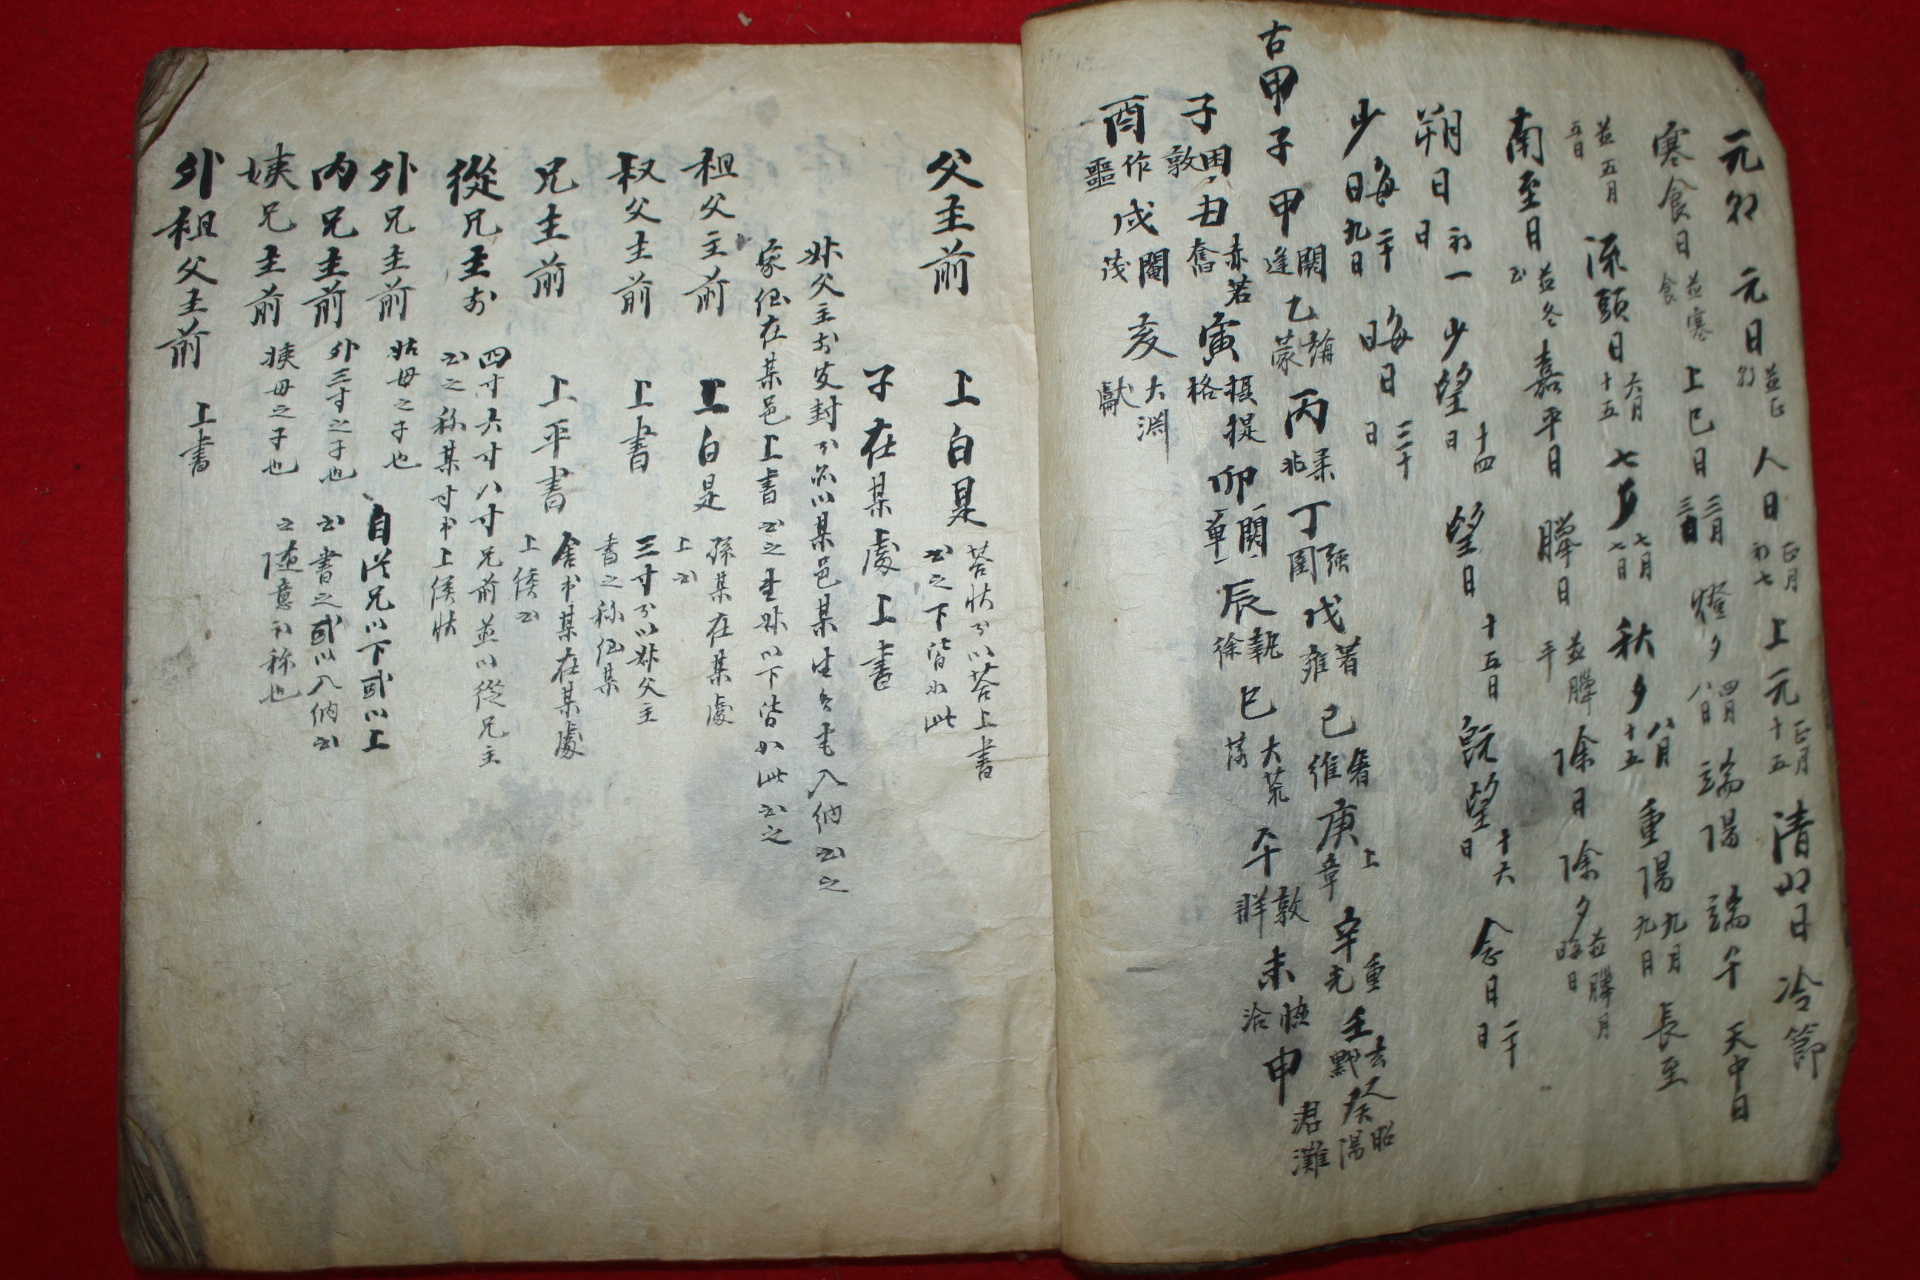 元朝 元日 並正朝 人日 正月初七 上元 正月十五 清明日 冷節
寒食日 並寒食 上巳日 三月三日 燈夕 四月八日 端陽 端午 天中日
並五月五日 流頭日 六月十五 七夕 七月七日 秋夕 八月十五 重陽 九月九日 長至
南至日 並冬至 嘉平日 臘日 並臘平 除日 除夕 並臘月晦日
朔日 初一日 少望 十四日 望日 十五日 旣望 十六日 念日 二十日
少晦 二十九日 晦日 三十日
古甲子 甲 閼逢 乙 蒙 丙 柔兆 丁 强圉 戊 著雍 己 屠維 庚 上章 辛 重光 壬 玄黓 癸 昭陽
子 困敦 丑 赤奮若 寅 攝提格 卯 單閼 辰 執徐 巳 大荒落 午 敦牂 未 協洽 申 君灘
酉 作噩 戌 閹茂 亥 大淵獻
父主前 上白是 答狀則以答上書云之下皆如此
子在某處上書
父主前皮封則 以某邑某生員宅入納云之
家侄在某邑上書云之 以下皆如此云之
祖父主前 上白是 孫某在某處上云
叔父主前 上書 三寸則以 父主書之称侄某
兄主前 上平書 舍弟某在某處上候云
從兄主前 四寸六寸八寸兄前並以從兄主云之称某寸弟上候狀
外兄主前 姑母之子也 自從兄以下或以上
內兄主前 外三寸之子也 云書之或以入納云
姨兄主前 姨母之子也 之随意 称也
外祖父主前 上書